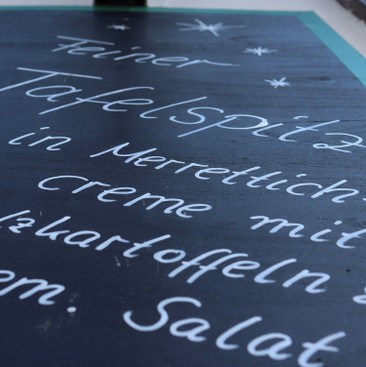 Feiner
Tafelspitz
in Merrettich-
creme mit
lzkartoffeln
em. Salat